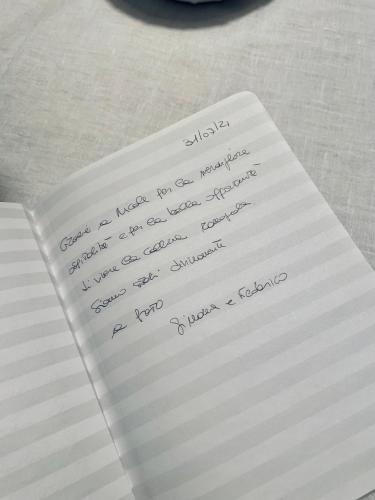 31/07/21
Grazie a Nicole per la
ospitalità e per la bella opportunità
di vivere la cultura
Siamo stati divinamente
a
Simona e Federico